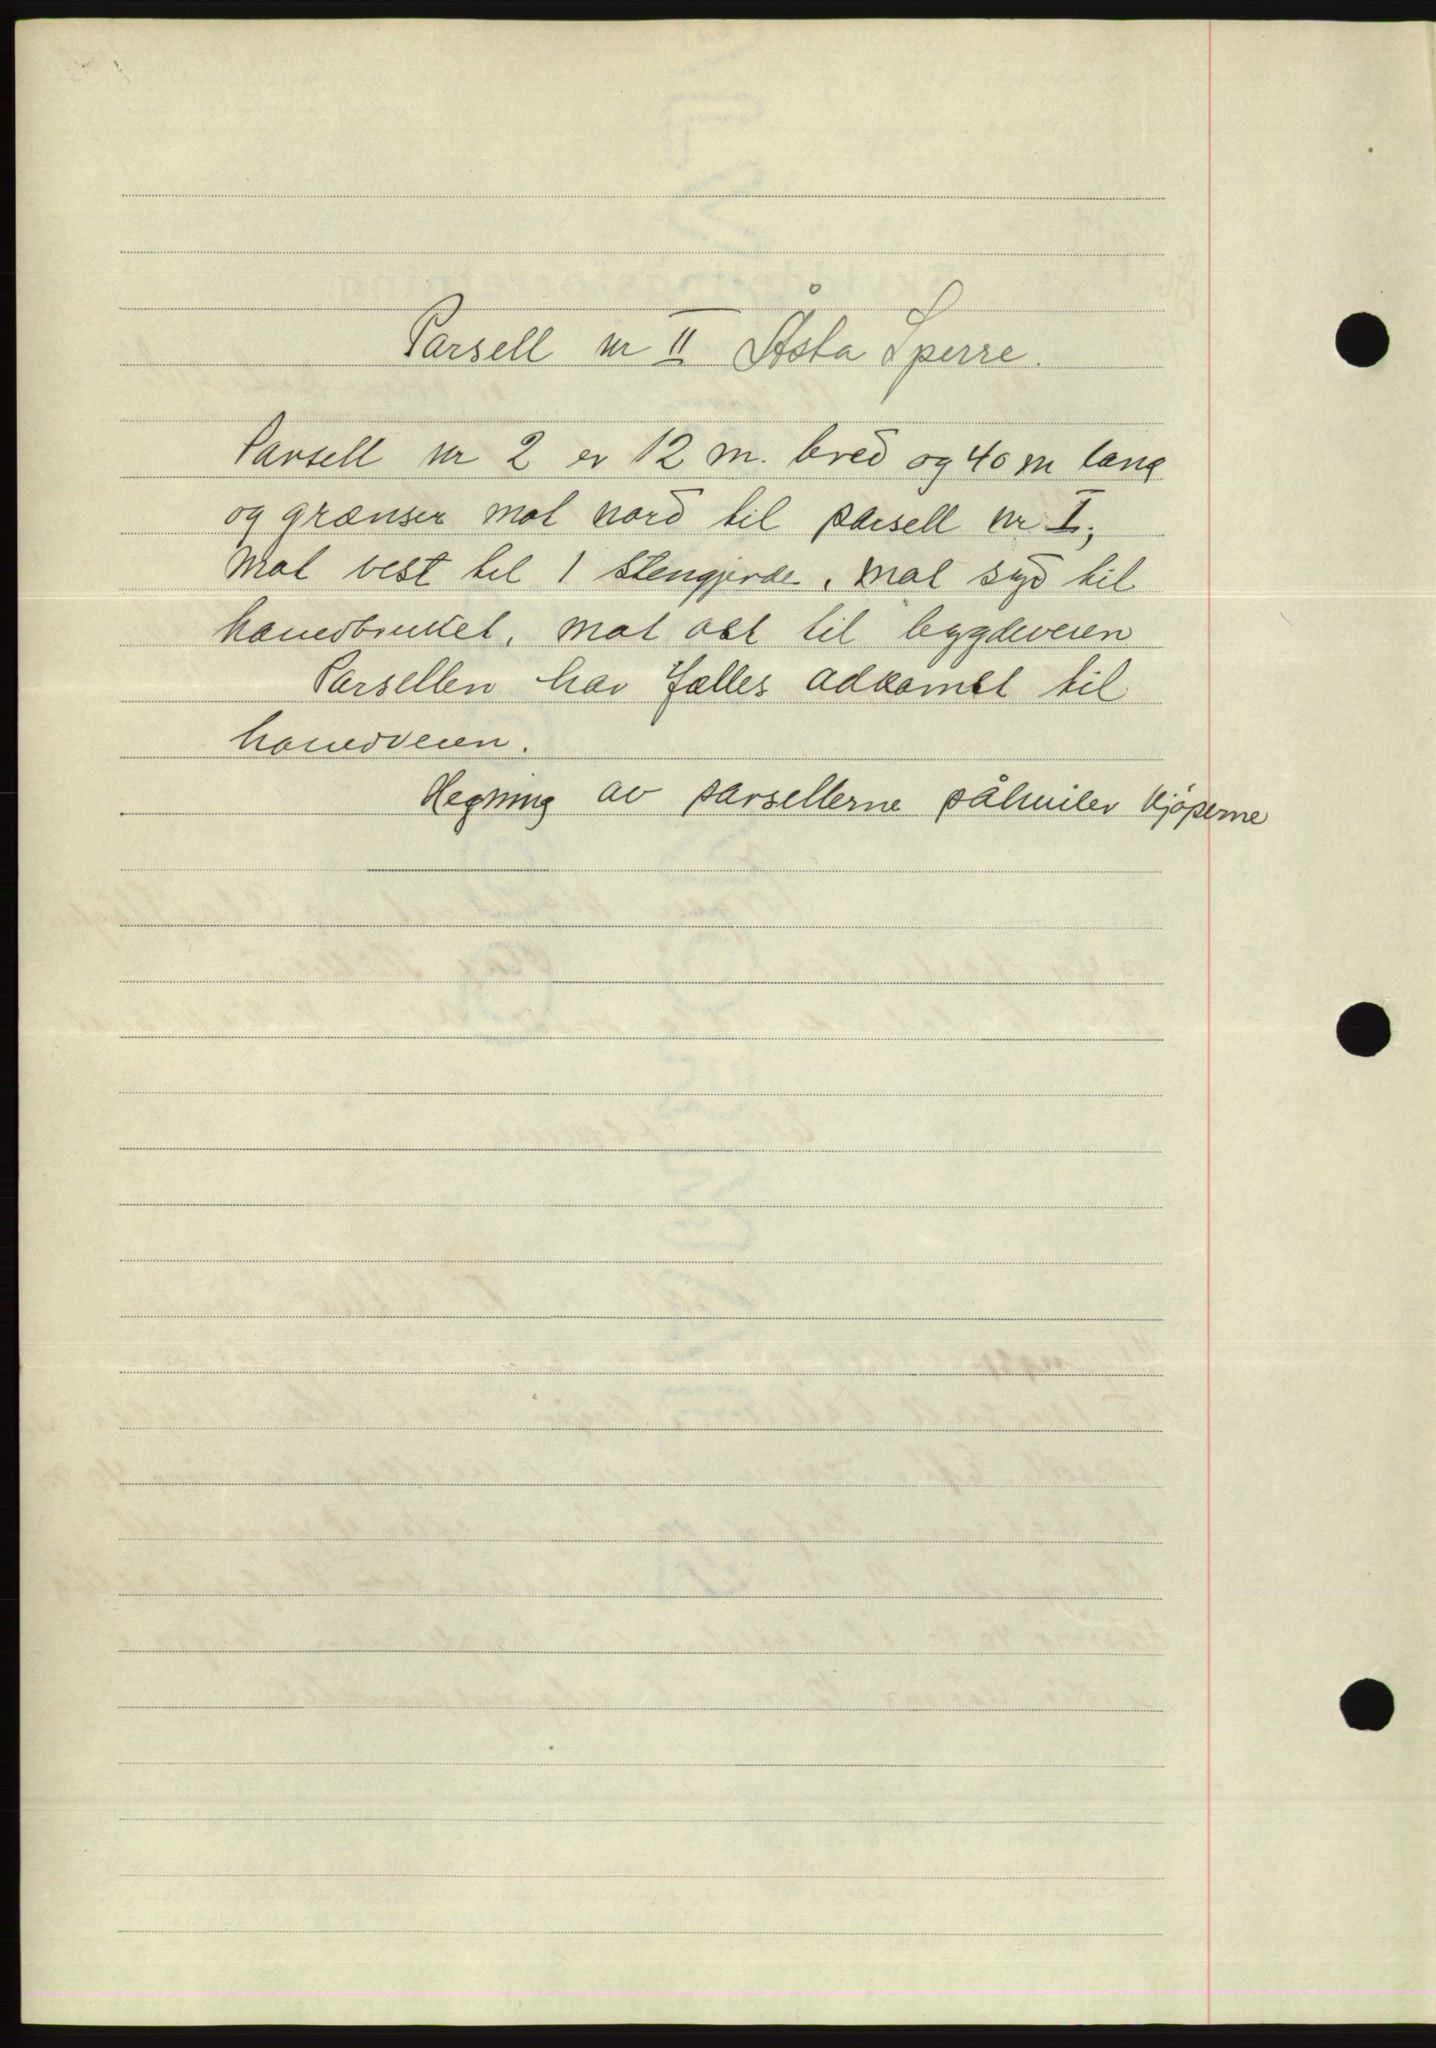 Parsell nr II Åsta Sperre.
Parsell nr 2 er 12 m. bred og 40 m lang
og grænser mot nord til parsell nr I;
Mot vest til 1 stengjerde. Mot syd til
hovedbruket, mot ost til bygdeveien
Parsellen har fælles adkomst til
hovedveien.
Hegning av parsellerne påhviler kjøperne